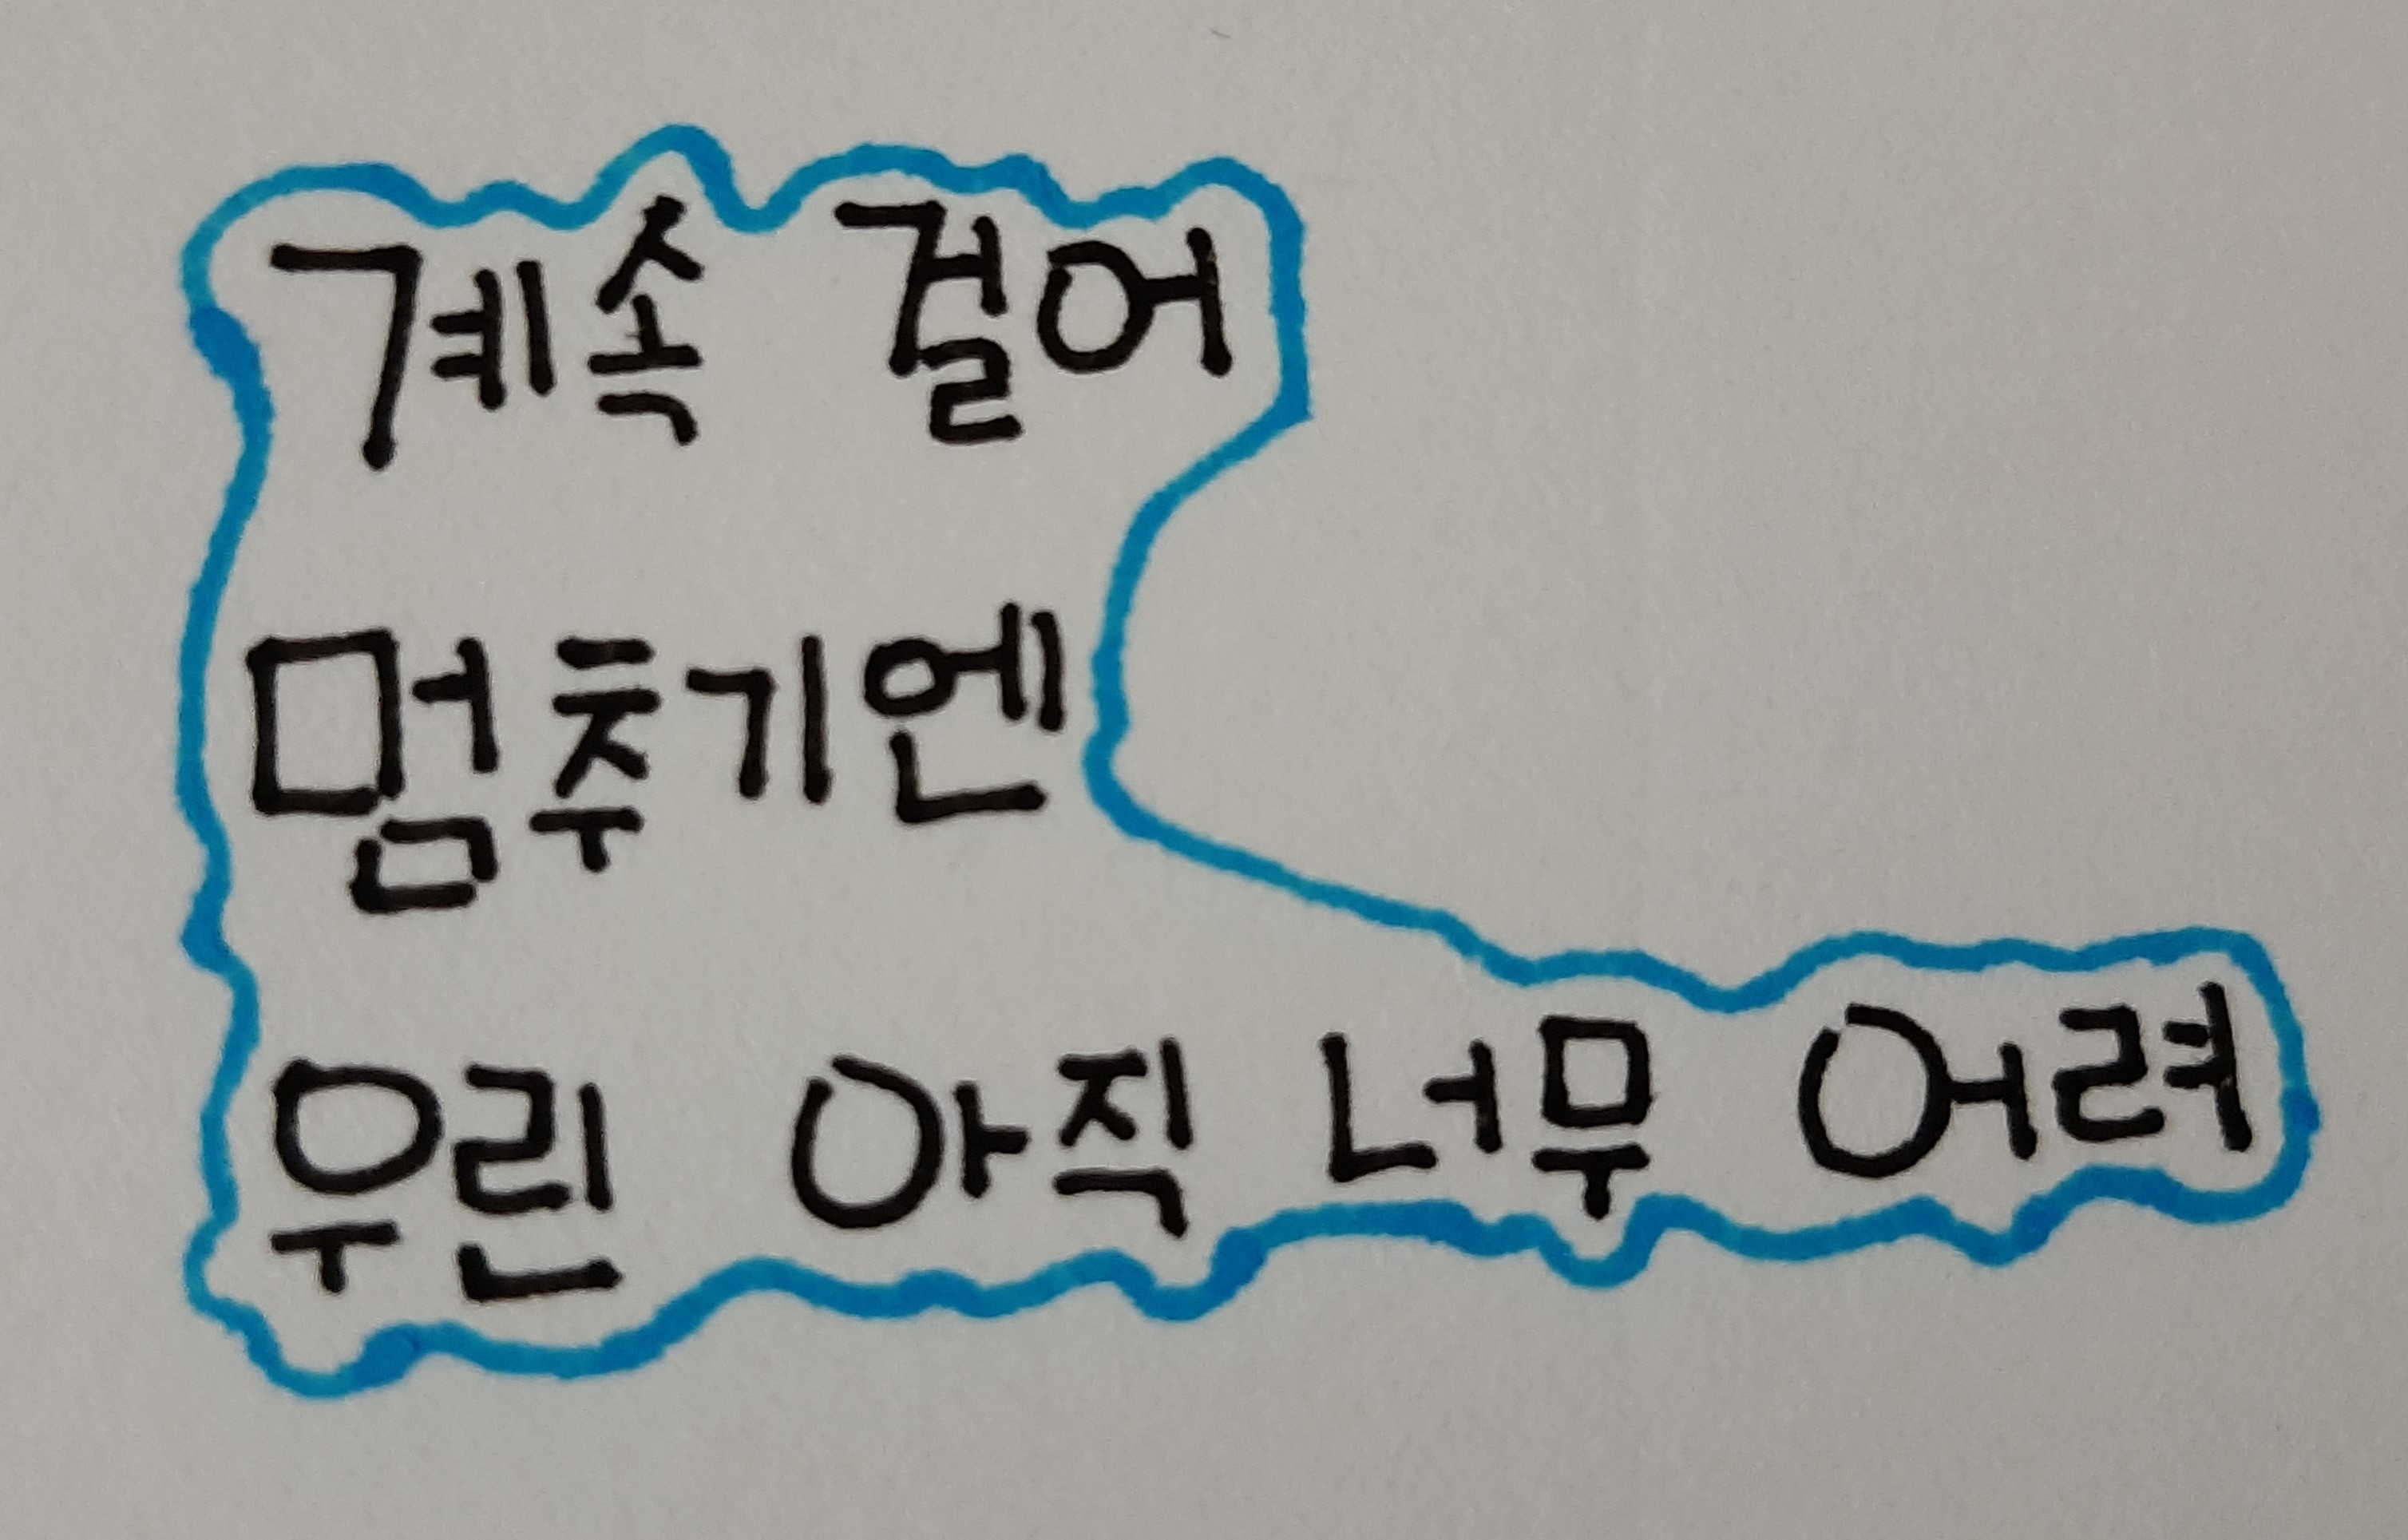 계속 걸어
멈추기엔
우린 아직 너무 어려